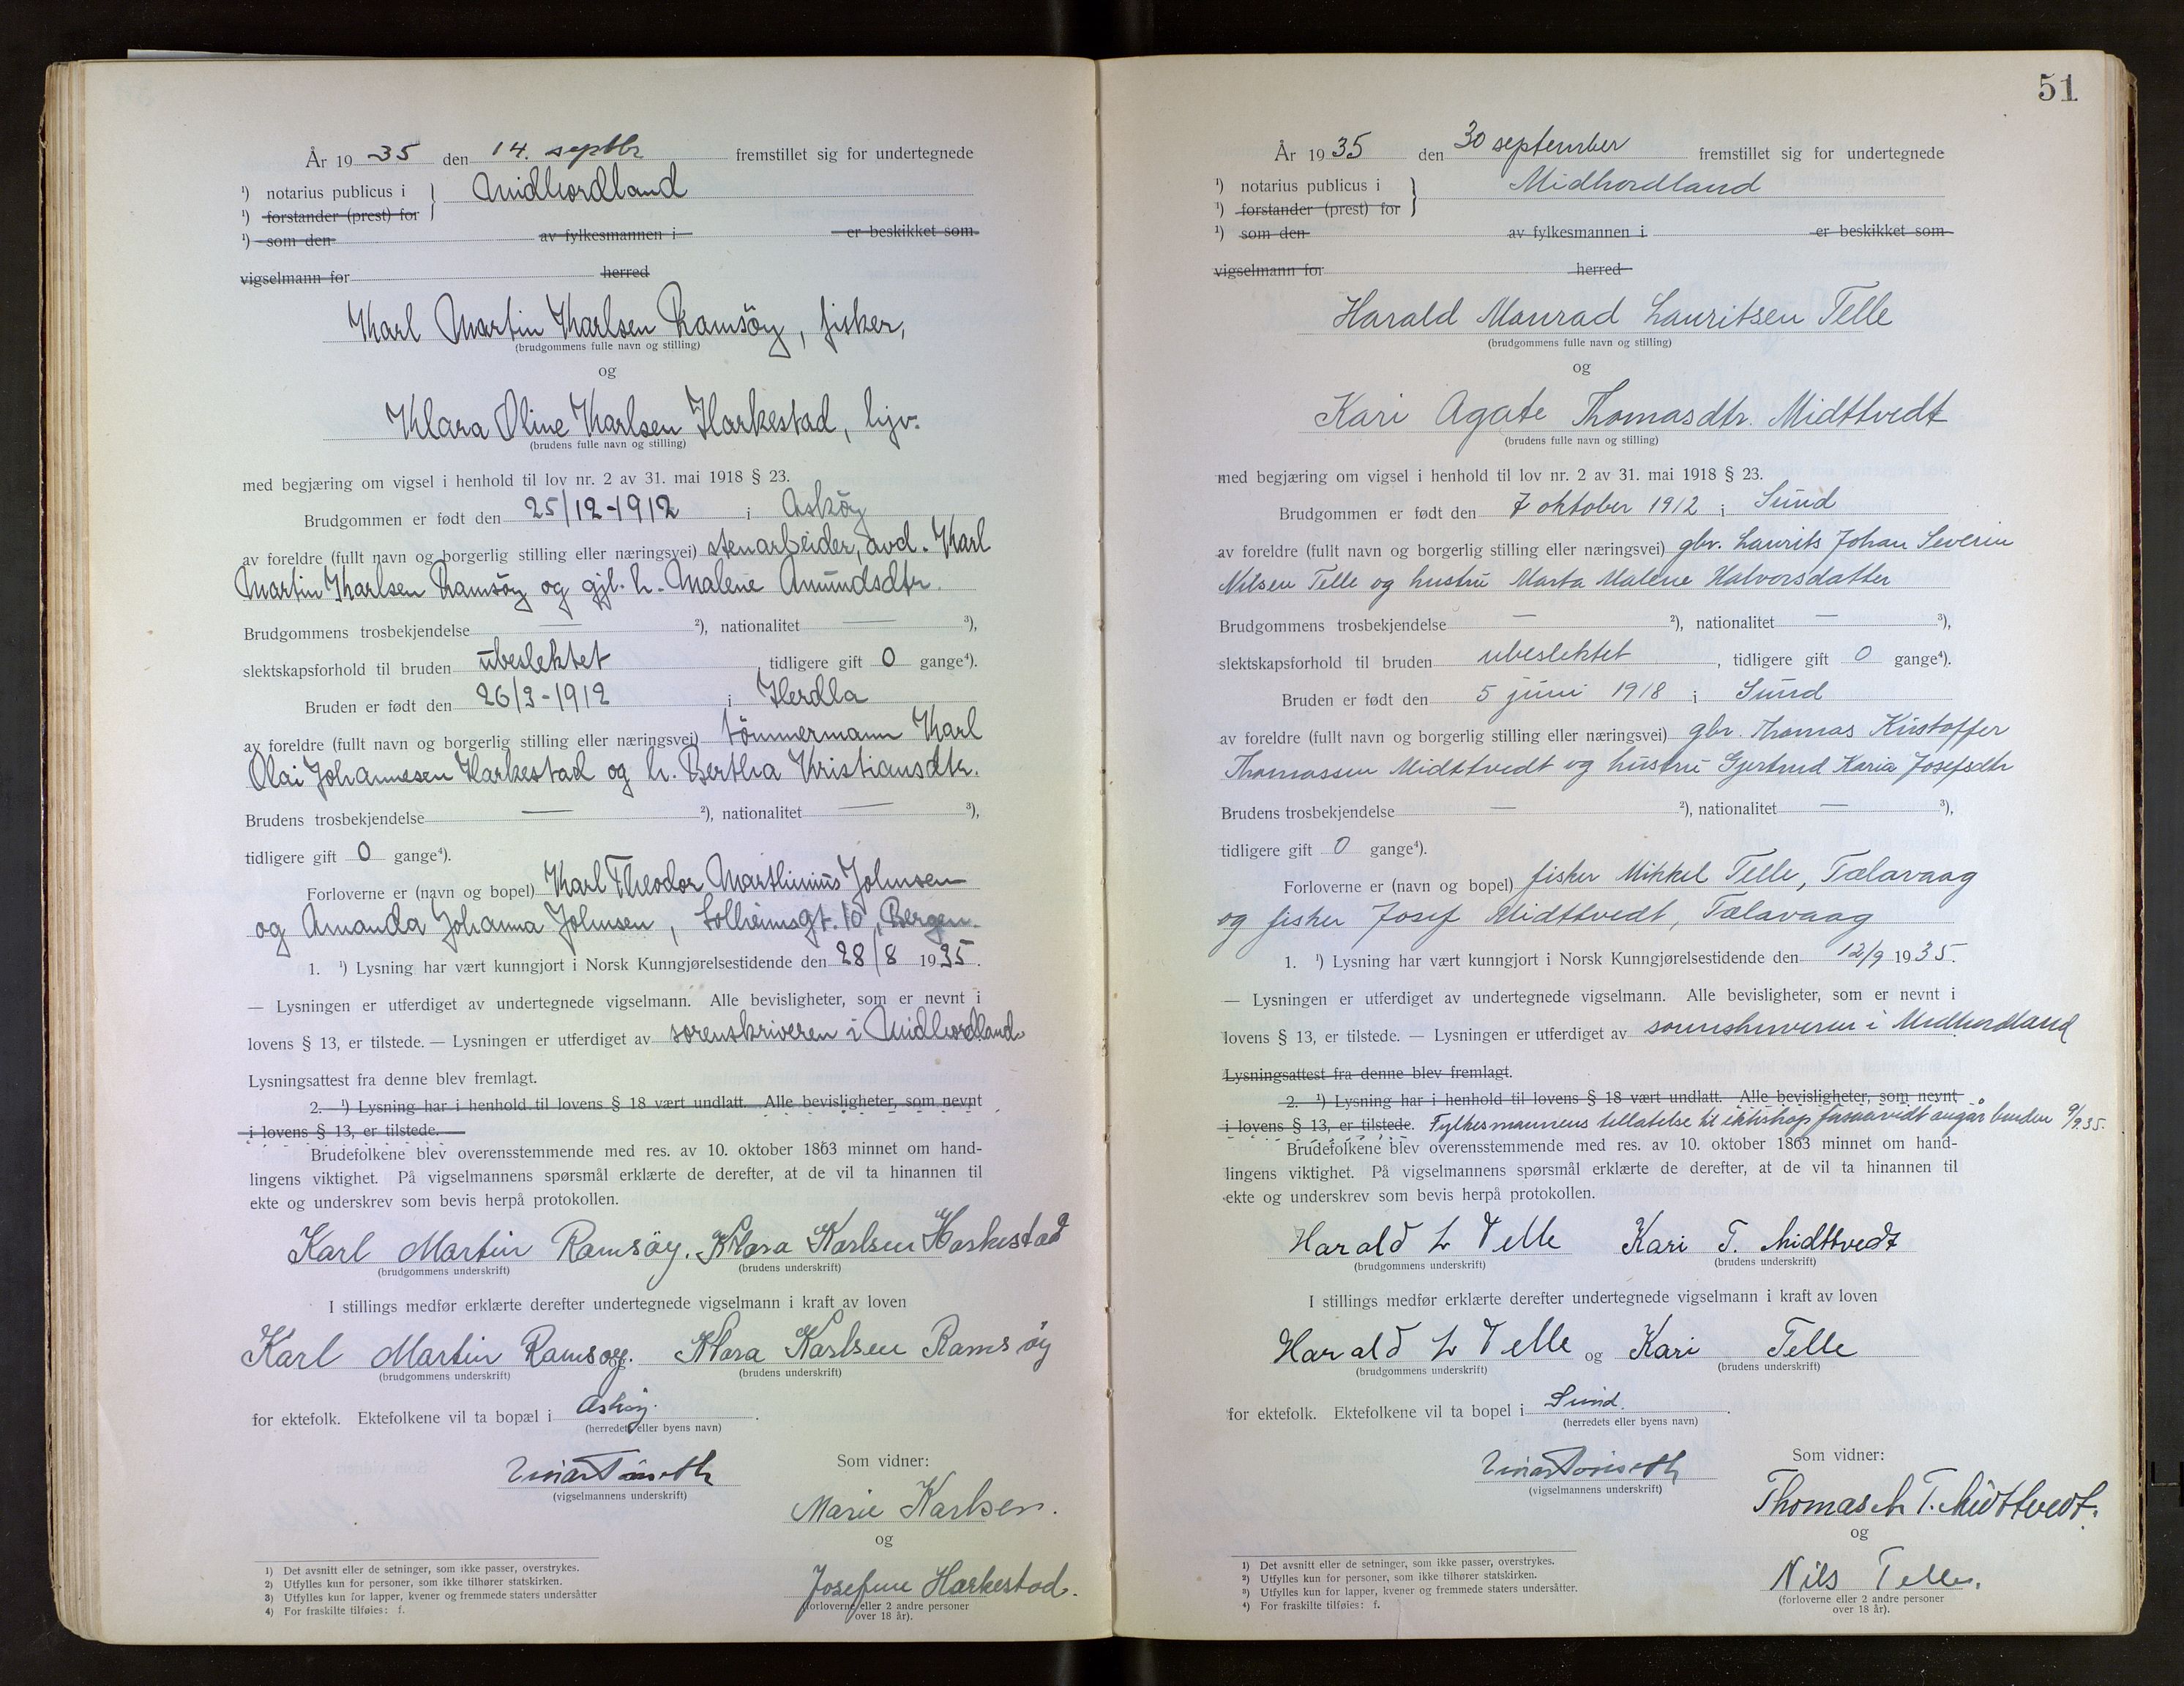 År 1935 den 14. septbr fremstillet sig for undertegnede
¹) notarius publicus i } Midhordland
¹) forstander (prest) for
¹) som den av fylkesmannen i er beskikket som
vigselmann for herred
Karl Martin Karlsen Ramsöy, fisker,
(brudgommens fulle navn og stilling)
og
Klara Oline Karlsen Harkestad, hjv.
(brudens fulle navn og stilling)
med begjæring om vigsel i henhold til lov nr. 2 av 31. mai 1918 § 23.
Brudgommen er født den 25/12-1912 i Asköy
av foreldre (fullt navn og borgerlig stilling eller næringsvei) stenarbeider, avd. Karl
Martin Karlsen Ramsöy og gjl. h. Malene Amundsdtr.
Brudgommens trosbekjendelse — ²), nationalitet — ³),
slektskapsforhold til bruden ubeslektet, tidligere gift 0 gange⁴).
Bruden er født den 26/3-1912 i Herdla
av foreldre (fullt navn og borgerlig stilling eller næringsvei) tömmermann Karl
Olai Johannesen Harkestad og h. Bertha Kristiansdtr.
Brudens trosbekjendelse — ²), nationalitet — ³),
tidligere gift 0 gange⁴).
Forloverne er (navn og bopel) Karl Theodor Marthinius Johnsen
og Amanda Johanna Johnsen, Solheimsgt. 10, Bergen.
1. ¹) Lysning har vært kunngjort i Norsk Kunngjørelsestidende den 28/8 1935.
— Lysningen er utferdiget av undertegnede vigselmann. Alle bevisligheter, som er nevnt i
lovens § 13, er tilstede. — Lysningen er utferdiget av sorenskriveren i Midhordland.
Lysningsattest fra denne blev fremlagt.
2. ¹) Lysning har i henhold til lovens § 18 vært undlatt. Alle bevisligheter, som nevnt
i lovens § 13, er tilstede.
Brudefolkene blev overensstemmende med res. av 10. oktober 1863 minnet om hand-
lingens viktighet. På vigselmannens spørsmål erklærte de derefter, at de vil ta hinannen til
ekte og underskrev som bevis herpå protokollen.
Karl Martin Ramsöy. Klara Karlsen Harkestad
(brudgommens underskrift) (brudens underskrift)
I stillings medfør erklærte derefter undertegnede vigselmann i kraft av loven
Karl Martin Ramsöy. og Klara Karlsen Ramsöy
(brudgommens underskrift) (brudens underskrift)
for ektefolk. Ektefolkene vil ta bopæl i Asköy.
(herredets eller byens navn)
(vigselmannens underskrift)
Som vidner:
Marie Karlsen.
og
Josefine Harkestad.
(forloverne eller 2 andre personer
over 18 år).
1) Det avsnitt eller de setninger, som ikke passer, overstrykes.
2) Utfylles kun for personer, som ikke tilhører statskirken.
3) Utfylles kun for lapper, kvener og fremmede staters undersåtter
4) For fraskilte tilføies: f.
51
År 1935 den 30 september fremstillet sig for undertegnede
¹) notarius publicus i } Midhordland
¹) forstander (prest) for
¹) som den av fylkesmannen i er beskikket som
vigselmann for herred
Harald Monrad Lauritsen Telle
(brudgommens fulle navn og stilling)
og
Kari Agate Thomasdtr. Midttvedt
(brudens fulle navn og stilling)
med begjæring om vigsel i henhold til lov nr. 2 av 31. mai 1918 § 23.
Brudgommen er født den 7 oktober 1912 i Sund
av foreldre (fullt navn og borgerlig stilling eller næringsvei) gbr. Laurits Johan Severin
Nilsen Telle og hustru Marta Malene Halvorsdatter
Brudgommens trosbekjendelse — ²), nationalitet — ³),
slektskapsforhold til bruden ubeslektet, tidligere gift 0 gange⁴).
Bruden er født den 5 juni 1918 i Sund
av foreldre (fullt navn og borgerlig stilling eller næringsvei) gbr. Thomas Kristoffer
Thomassen Midttvedt og hustru Gjertrud Karia Josefsdtr
Brudens trosbekjendelse — ²), nationalitet — ³),
tidligere gift 0 gange⁴).
Forloverne er (navn og bopel) fisker Mikkel Telle, Tælavaag
og fisker Josef Midttvedt, Tælavaag
1. ¹) Lysning har vært kunngjort i Norsk Kunngjørelsestidende den 12/9 1935.
— Lysningen er utferdiget av undertegnede vigselmann. Alle bevisligheter, som er nevnt i
lovens § 13, er tilstede. — Lysningen er utferdiget av sorenskriveren i Midhordland
Lysningsattest fra denne blev fremlagt.
2. ¹) Lysning har i henhold til lovens § 18 vært undlatt. Alle bevisligheter, som nevnt
i lovens § 13, er tilstede. Fylkesmannens tillatelse til ekteskap forsaavidt angår bruden 9/9.35.
Brudefolkene blev overensstemmende med res. av 10. oktober 1863 minnet om hand-
lingens viktighet. På vigselmannens spørsmål erklærte de derefter, at de vil ta hinannen til
ekte og underskrev som bevis herpå protokollen.
Harald L Telle Kari T. Midttvedt
(brudgommens underskrift) (brudens underskrift)
I stillings medfør erklærte derefter undertegnede vigselmann i kraft av loven
Harald L Telle og Kari Telle
(brudgommens underskrift) (brudens underskrift)
for ektefolk. Ektefolkene vil ta bopel i Sund.
(herredets eller byens navn)
(vigselmannens underskrift)
Som vidner:
Thomas Kr T. Midttvedt.
og
Nils Telle.
(forloverne eller 2 andre personer
over 18 år).
1) Det avsnitt eller de setninger, som ikke passer, overstrykes.
2) Utfylles kun for personer, som ikke tilhører statskirken.
3) Utfylles kun for lapper, kvener og fremmede staters undersåtter.
4) For fraskilte tilføies: f.